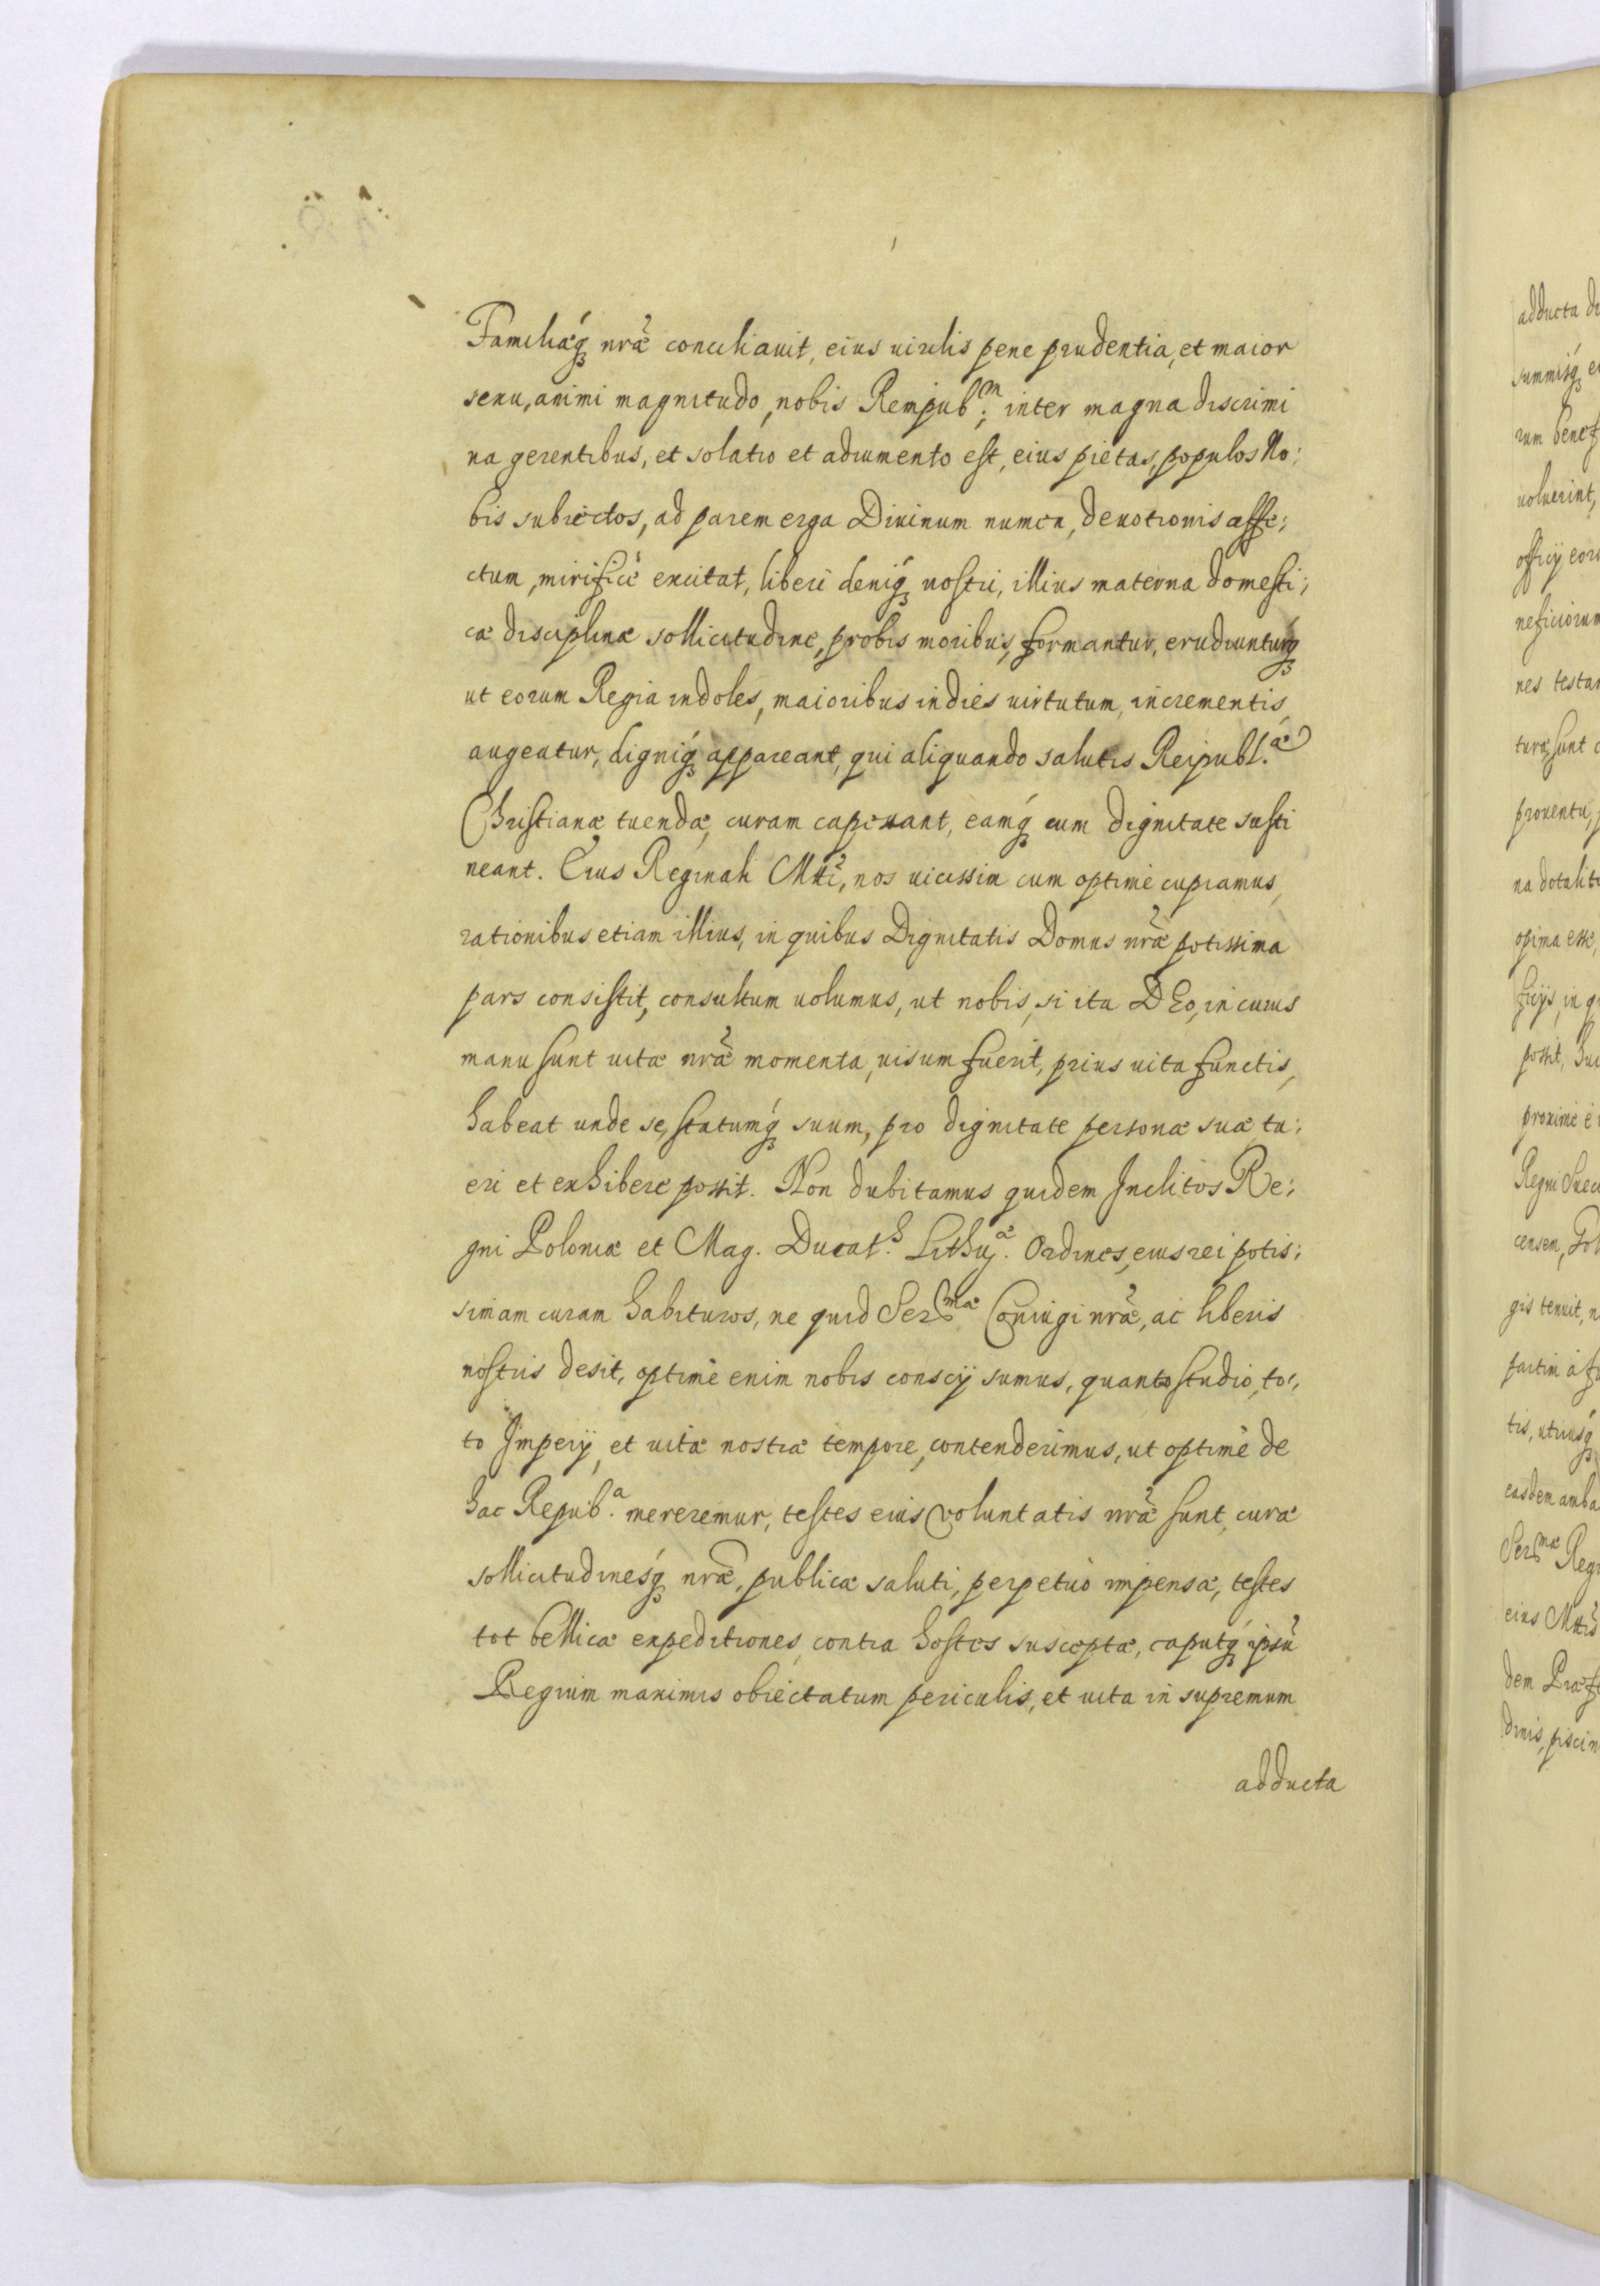 Familiæq́ꝫ nræ̃ conciliauit, eius uirilis pene prudentia, et maior
sexu, animi magnitudo, nobis Rempub:ᵐ inter magna discrimi
na gerentibus, et solatio et adiumento est, eius pietas, populos No:
bis subiectos, ad parem erga Diuinum numen, deuotionis affe:
ctum, mirificè excitat, liberi deniq́ꝫ nostri, illius materna domesti:
cæ disciplinæ sollicitudine, probis moribus, formantur, erudiunturq́ꝫ
ut eorum Regia indoles, maioribus indies uirtutum, incrementis,
augeatur, digniq́ꝫ appareant, qui aliquando salutis Reipubl.æ
Christianæ tuendæ, curam capexant, eamq́ꝫ cum dignitate susti
neant. Eius Reginali Mttĩ, nos uicissim cum optimè cupiamus,
rationibus etiam illius, in quibus Dignitatis Domus nræ̃ potissima
pars consistit, consultum uolumus, ut nobis, si ita DEo, in cuius
manu sunt uitæ nræ̃ momenta, uisum fuerit, prius uita functis,
habeat unde se, statumq́ꝫ suum, pro dignitate personæ suæ, tu:
eri et exhibere possit. Non dubitamus quidem Inclitos Re:
gni Poloniæ et Mag. Ducat.ˢ Lithuæ. Ordines, eius rei potis:
simam curam habituros, ne quid Serᵐæ Coniugi nræ̃, ac liberis
nostris desit, optimè enim nobis conscij sumus, quanto studio, to:
to Imperij, et uitæ nostræ tempore, contenderimus, ut optimè de
hac Repub.ᵃ mereremur, testes eius voluntatis nræ̃ sunt, curæ
sollicitudinesq́ꝫ nræ̃, publicæ saluti, perpetuò impensæ, testes
tot bellicæ expeditiones, contra hostes susceptæ, caputq́ꝫ ipsũ
Regium maximis obiectatum periculis, et uita in supremum
adducta
adducta
summisq́ꝫ
rum
uoluerint,
officij
neficiorum
nes
turæ sunt
prouentu,
na
opima esse,
ficijs, in
possit,
proximè
Regni
censem,
gis tenuit,
partim à
tis, utriusq́ꝫ
easdem
Serᵐæ
eius Mttis̃
dem
dinis,